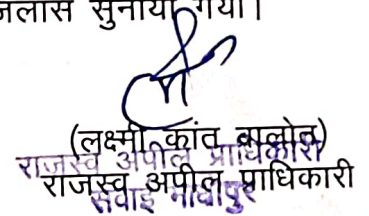 जलास सुनाया गया।
(लक्ष्मी कांत बालोत)
राजस्व अपील प्राधिकारी
राजस्व अपील प्राधिकारी
सवाई माधोपुर